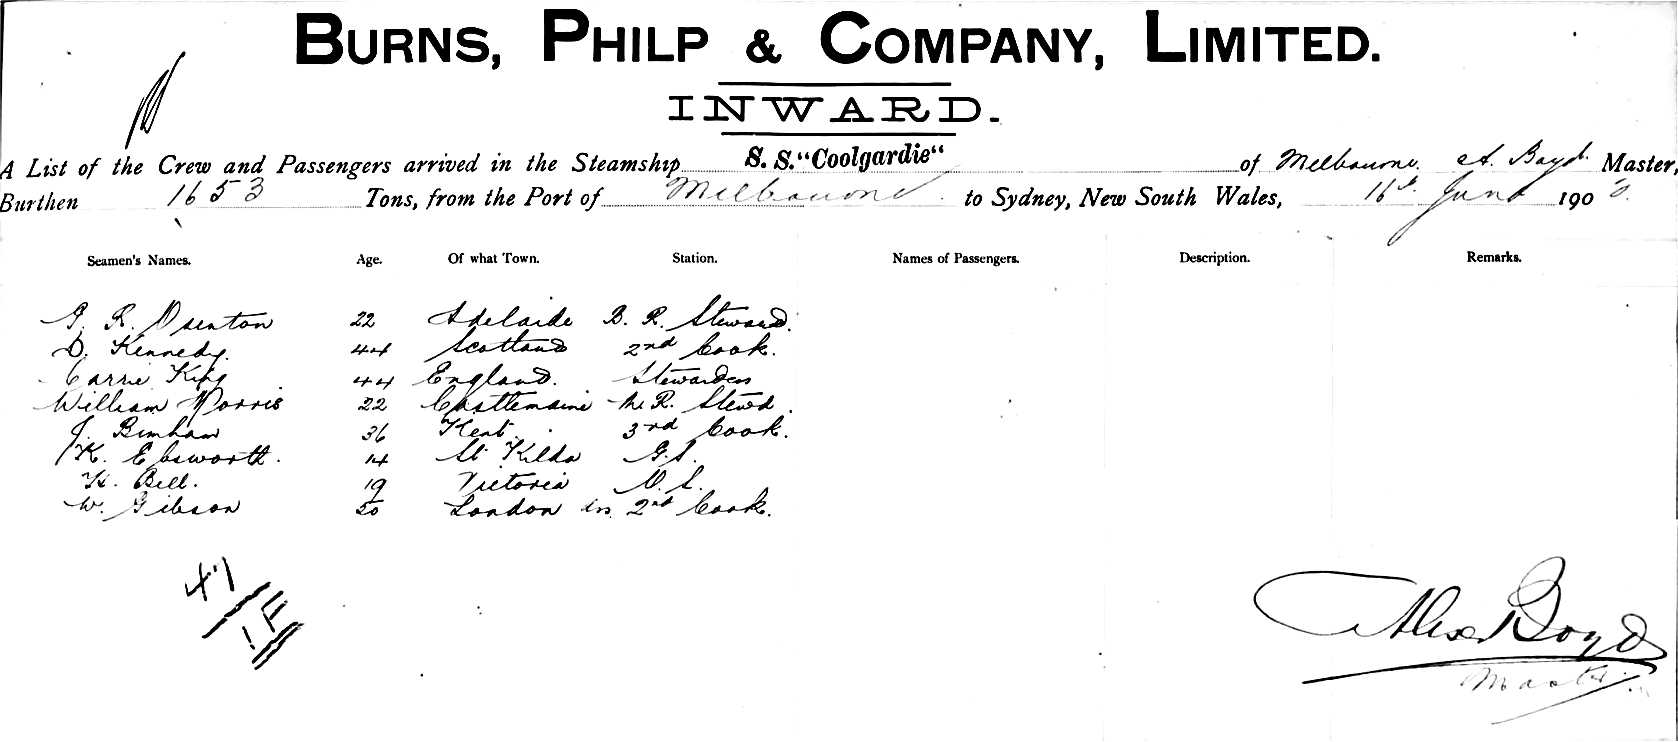 BURNS, PHILP & COMPANY, LIMITED.
INWARD.
A List of the Crew and Passengers arrived in the Steamship S. S. "Coolgardie" of Melbourne, A. Boyd Master,
Burthen 1653 Tons, from the Port of Melbourne to Sydney, New South Wales, 16th June 190
Seamen's Names. Age. Of what Town. Station. Names of Passengers. Description. Remarks.
G. R. Osenton 22 Adelaide B. R. Steward.
D. Kennedy. 44 Scotland 2nd Cook.
Carrie King 44 England. Stewardess
William Morris 22 Castlemaine M. R. Stewd.
J. Benham 36 Kent. 3rd Cook.
K. Ebsworth. 14 St Kilda G.S.
H. Bill. 19 Victoria O. S.
W. Gibson 50 London 2nd Cook.
41
1 F
Alexr Boyd
Master